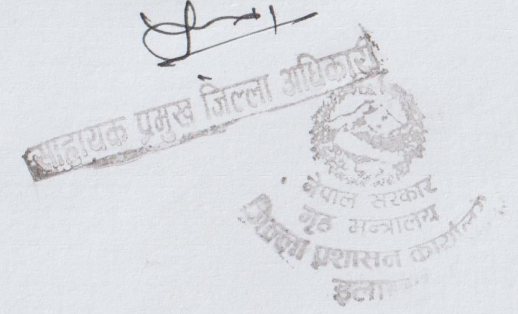 सहायक प्रमुख जिल्ला अधिकारी
नेपाल सरकार
गृह मन्त्रालय
जिल्ला प्रशासन कार्यालय